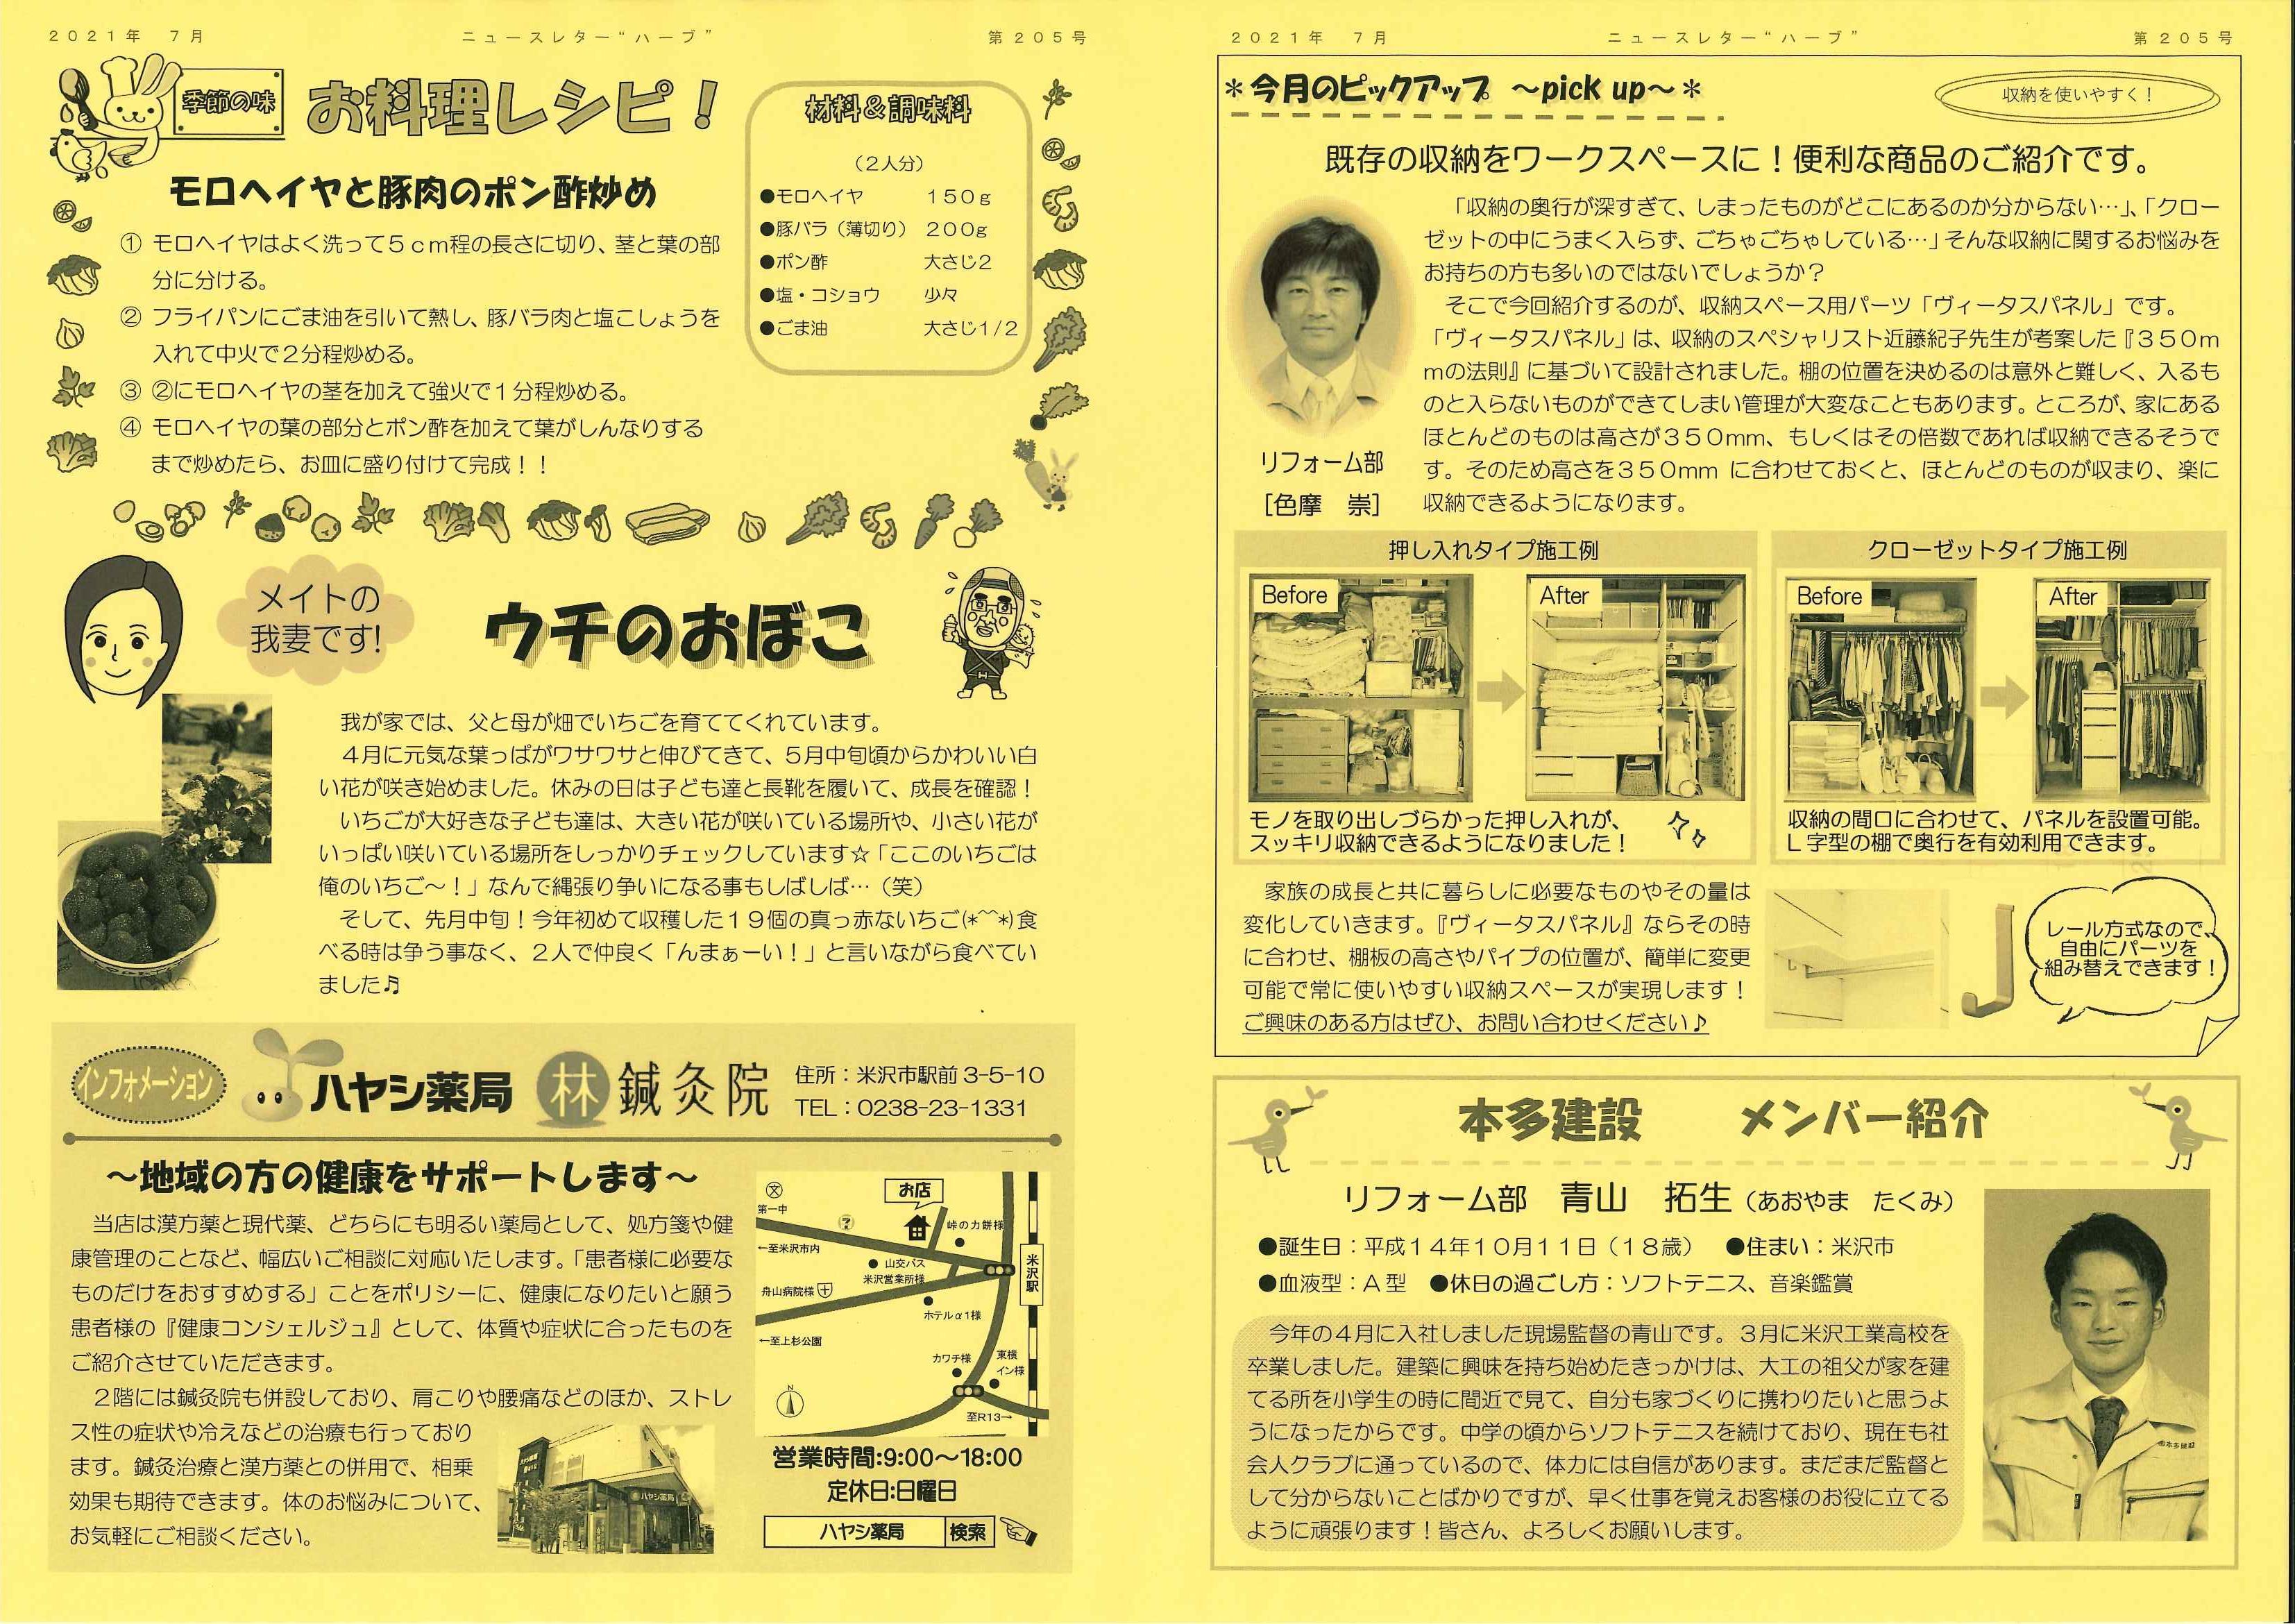 2021年　7月
ニュースレター“ハーブ”
第205号
季節の味
お料理レシピ！
モロヘイヤと豚肉のポン酢炒め
① モロヘイヤはよく洗って５ｃｍ程の長さに切り、茎と葉の部
分に分ける。
② フライパンにごま油を引いて熱し、豚バラ肉と塩こしょうを
入れて中火で２分程炒める。
③ ②にモロヘイヤの茎を加えて強火で１分程炒める。
④ モロヘイヤの葉の部分とポン酢を加えて葉がしんなりする
まで炒めたら、お皿に盛り付けて完成！！
材料＆調味料
（２人分）
●モロヘイヤ　１５０ｇ
●豚バラ（薄切り）　200g
●ポン酢　大さじ2
●塩・コショウ　少々
●ごま油　大さじ1/2
メイトの
我妻です!
ウチのおぼこ
我が家では、父と母が畑でいちごを育ててくれています。
４月に元気な葉っぱがワサワサと伸びてきて、５月中旬頃からかわいい白
い花が咲き始めました。休みの日は子ども達と長靴を履いて、成長を確認！
いちごが大好きな子ども達は、大きい花が咲いている場所や、小さい花が
いっぱい咲いている場所をしっかりチェックしています☆「ここのいちごは
俺のいちご～！」なんて縄張り争いになる事もしばしば…（笑）
そして、先月中旬！今年初めて収穫した１９個の真っ赤ないちご(*^^*)食
べる時は争う事なく、２人で仲良く「んまぁーい！」と言いながら食べてい
ました♬
インフォメーション
ハヤシ薬局
林 鍼灸院
住所：米沢市駅前 3-5-10
TEL：0238-23-1331
～地域の方の健康をサポートします～
当店は漢方薬と現代薬、どちらにも明るい薬局として、処方箋や健
康管理のことなど、幅広いご相談に対応いたします。「患者様に必要な
ものだけをおすすめする」ことをポリシーに、健康になりたいと願う
患者様の『健康コンシェルジュ』として、体質や症状に合ったものを
ご紹介させていただきます。
２階には鍼灸院も併設しており、肩こりや腰痛などのほか、ストレ
ス性の症状や冷えなどの治療も行っており
ます。鍼灸治療と漢方薬との併用で、相乗
効果も期待できます。体のお悩みについて、
お気軽にご相談ください。
ハヤシ薬局
文
第一中
お店
峠の力餅様
←至米沢市内
山交バス
米沢営業所様
米沢駅
舟山病院様
ホテルα1様
←至上杉公園
カワチ様
東横
イン様
N
至R13→
営業時間:9:00～18:00
定休日:日曜日
ハヤシ薬局　検索
2021年　7月
ニュースレター“ハーブ”
第205号
＊今月のピックアップ　～pick up～＊
収納を使いやすく！
既存の収納をワークスペースに！便利な商品のご紹介です。
「収納の奥行が深すぎて、しまったものがどこにあるのか分からない…」、「クロー
ゼットの中にうまく入らず、ごちゃごちゃしている…」そんな収納に関するお悩みを
お持ちの方も多いのではないでしょうか？
そこで今回紹介するのが、収納スペース用パーツ「ヴィータスパネル」です。
「ヴィータスパネル」は、収納のスペシャリスト近藤紀子先生が考案した『３５０ｍ
ｍの法則』に基づいて設計されました。棚の位置を決めるのは意外と難しく、入るも
のと入らないものができてしまい管理が大変なこともあります。ところが、家にある
ほとんどのものは高さが３５０mm、もしくはその倍数であれば収納できるそうで
す。そのため高さを３５０mm に合わせておくと、ほとんどのものが収まり、楽に
収納できるようになります。
リフォーム部
[色摩　崇]
押し入れタイプ施工例
Before
After
モノを取り出しづらかった押し入れが、
スッキリ収納できるようになりました！
クローゼットタイプ施工例
Before
After
収納の間口に合わせて、パネルを設置可能。
Ｌ字型の棚で奥行を有効利用できます。
家族の成長と共に暮らしに必要なものやその量は
変化していきます。『ヴィータスパネル』ならその時
に合わせ、棚板の高さやパイプの位置が、簡単に変更
可能で常に使いやすい収納スペースが実現します！
ご興味のある方はぜひ、お問い合わせください♪
レール方式なので、
自由にパーツを
組み替えできます！
本多建設　メンバー紹介
リフォーム部　青山　拓生（あおやま　たくみ）
●誕生日：平成１４年１０月１１日（１８歳）　●住まい：米沢市
●血液型：Ａ型　●休日の過ごし方：ソフトテニス、音楽鑑賞
今年の４月に入社しました現場監督の青山です。３月に米沢工業高校を
卒業しました。建築に興味を持ち始めたきっかけは、大工の祖父が家を建
てる所を小学生の時に間近で見て、自分も家づくりに携わりたいと思うよ
うになったからです。中学の頃からソフトテニスを続けており、現在も社
会人クラブに通っているので、体力には自信があります。まだまだ監督と
して分からないことばかりですが、早く仕事を覚えお客様のお役に立てる
ように頑張ります！皆さん、よろしくお願いします。
本多建設